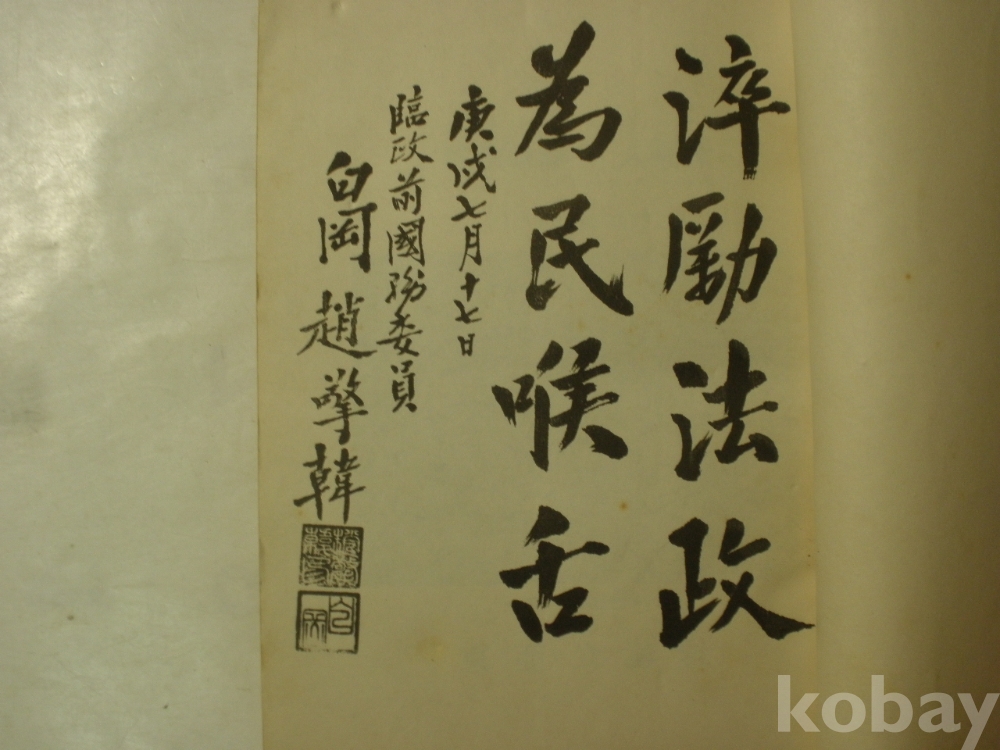 淬勵法政
為民喉舌
庚戌七月十七日
臨政前國務委員
白岡 趙擎韓
kobay